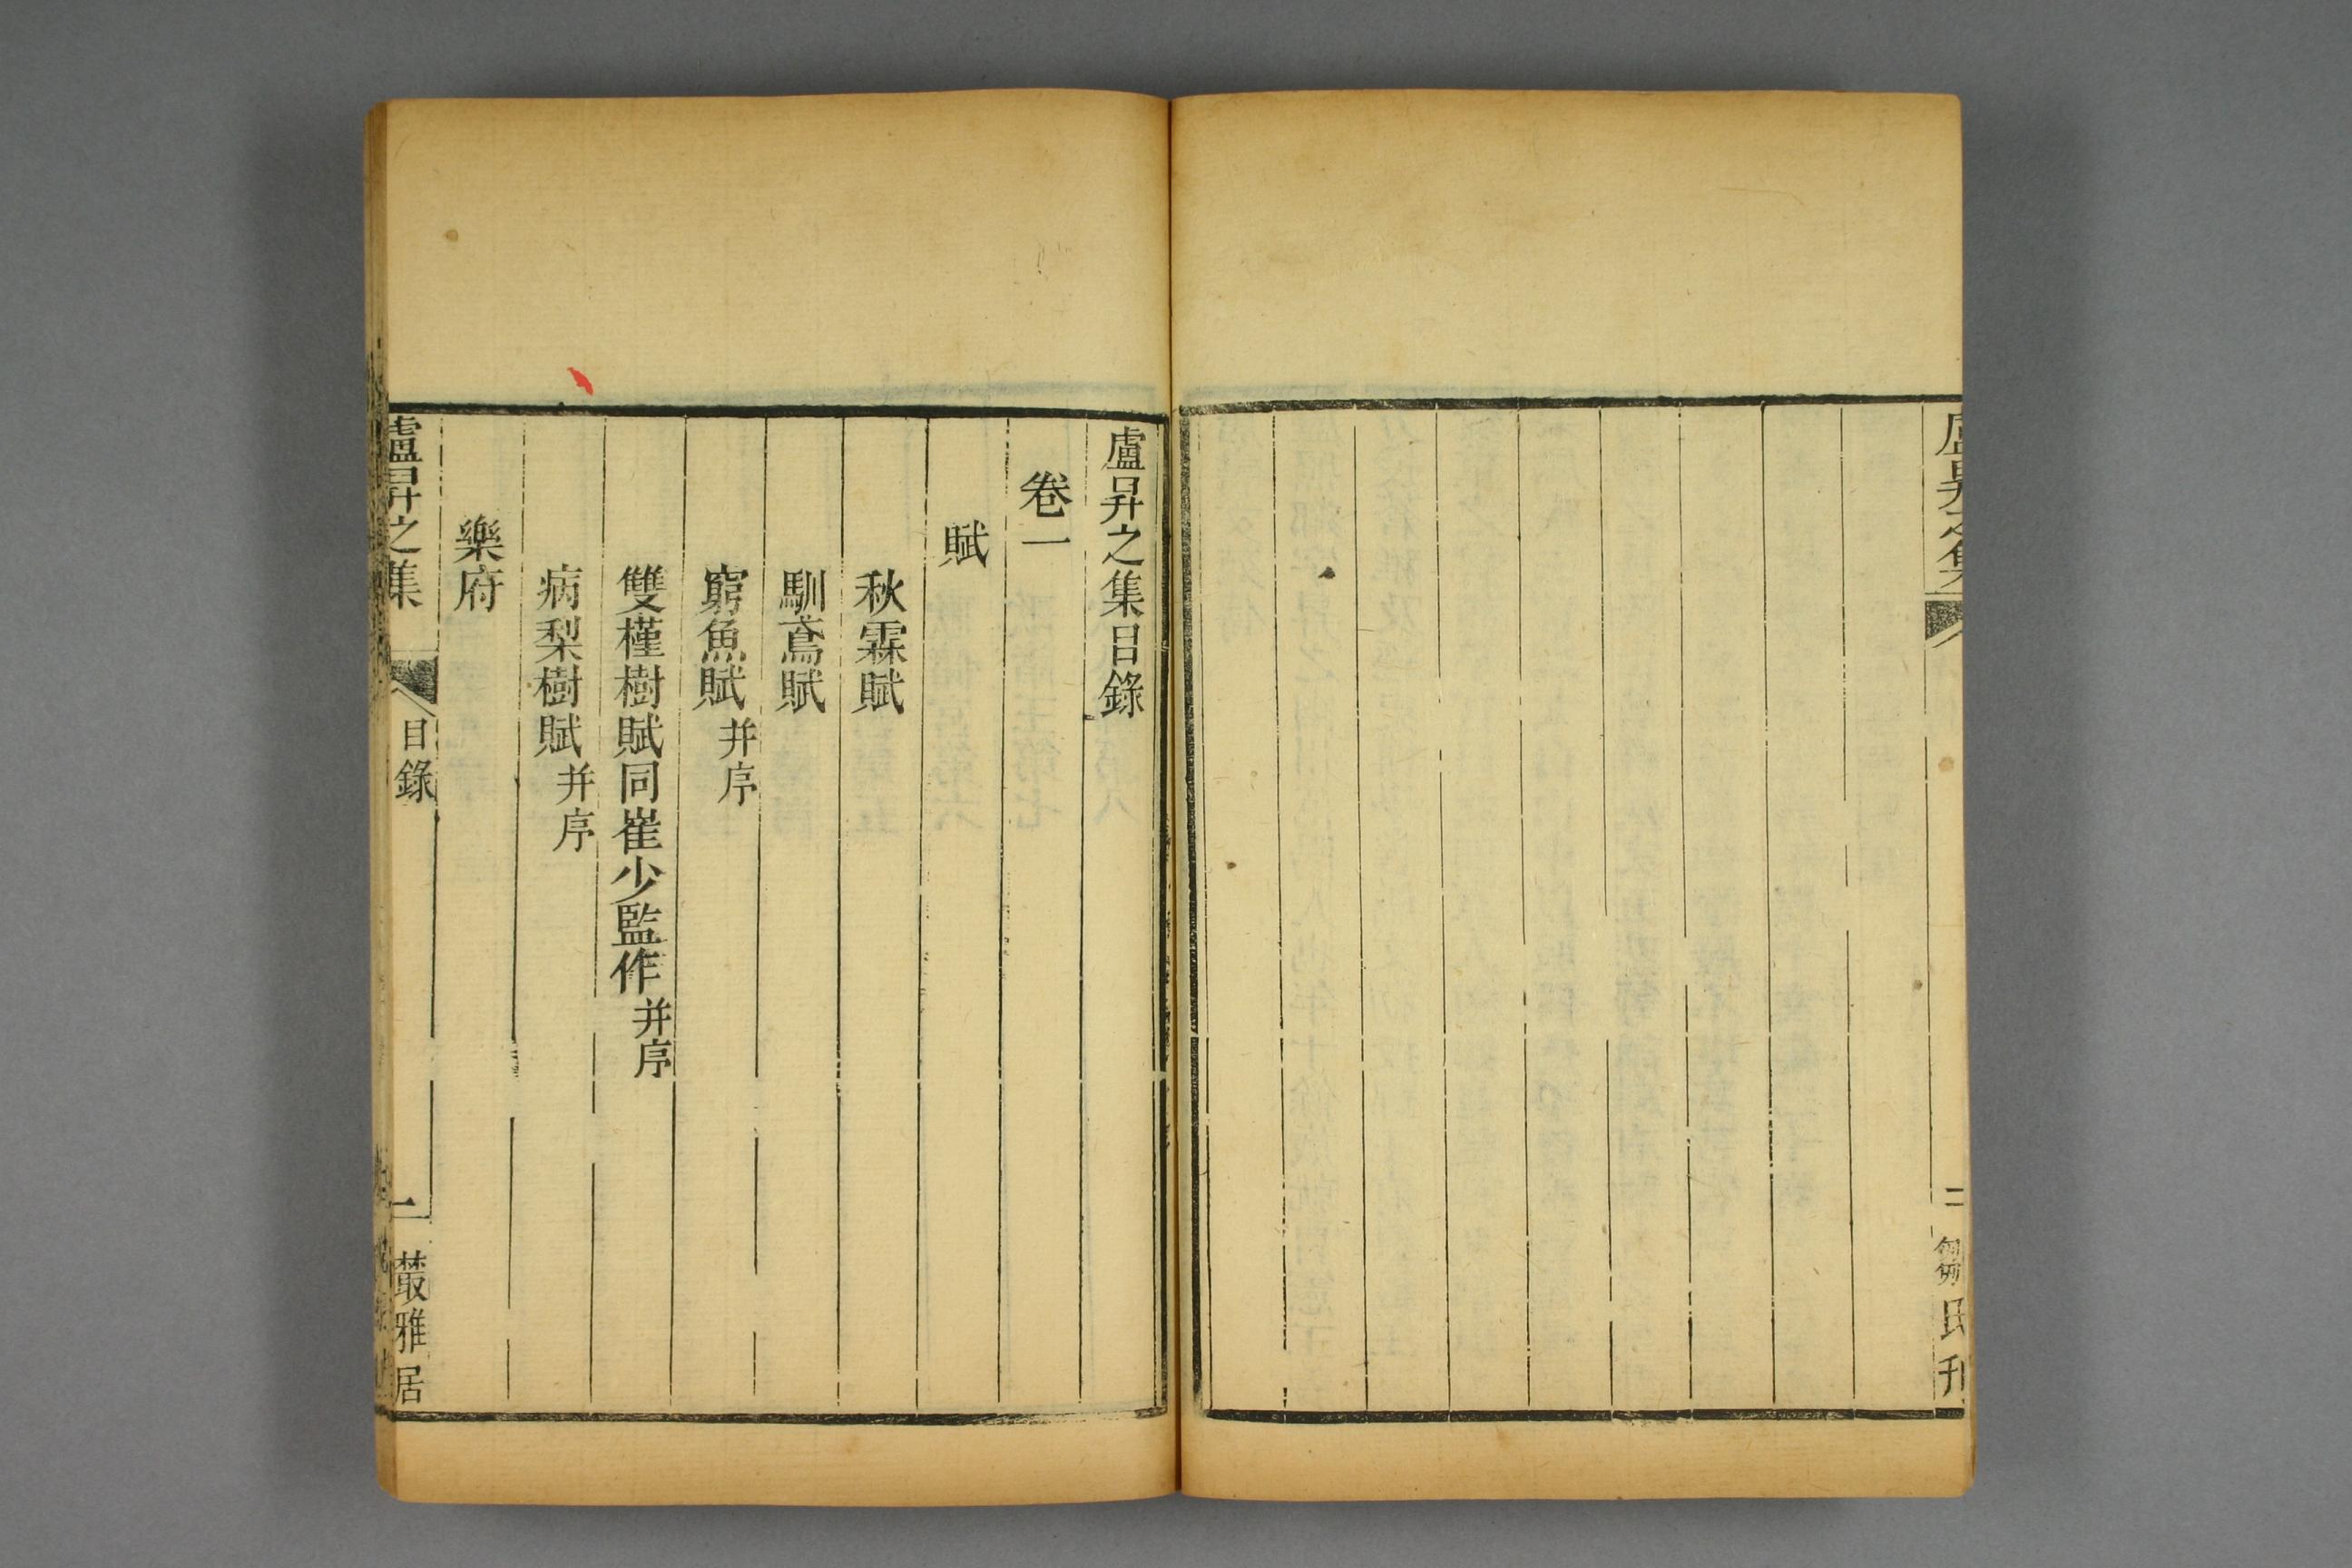 盧昇之集
二
氏刊
盧昇之集目錄
卷一
賦
秋霖賦
馴鳶賦
窮魚賦并序
雙槿樹賦同崔少監作并序
病梨樹賦并序
樂府
盧昇之集
目錄
一
叢雅居